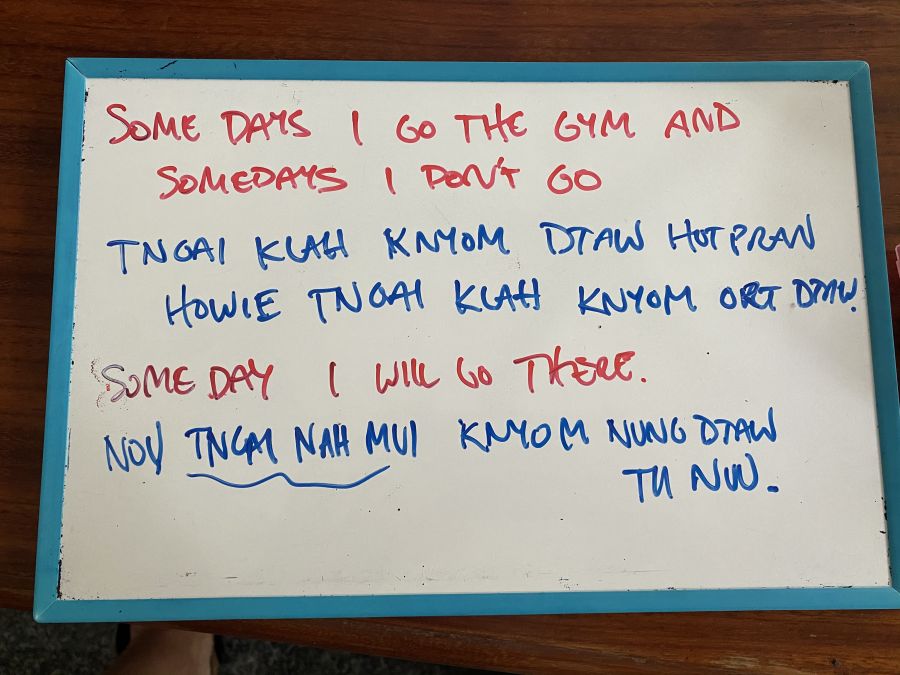 SOME DAYS I GO THE GYM AND
SOMEDAYS I DON'T GO
TNGAI KLAH KNYOM DTAW HOTPRAN
HOWIE TNGAI KLAH KNYOM ORT DTAW.
SOME DAY I WILL GO THERE.
NOV TNGAI NAH MUI KNYOM NUNG DTAW
TII NUV.